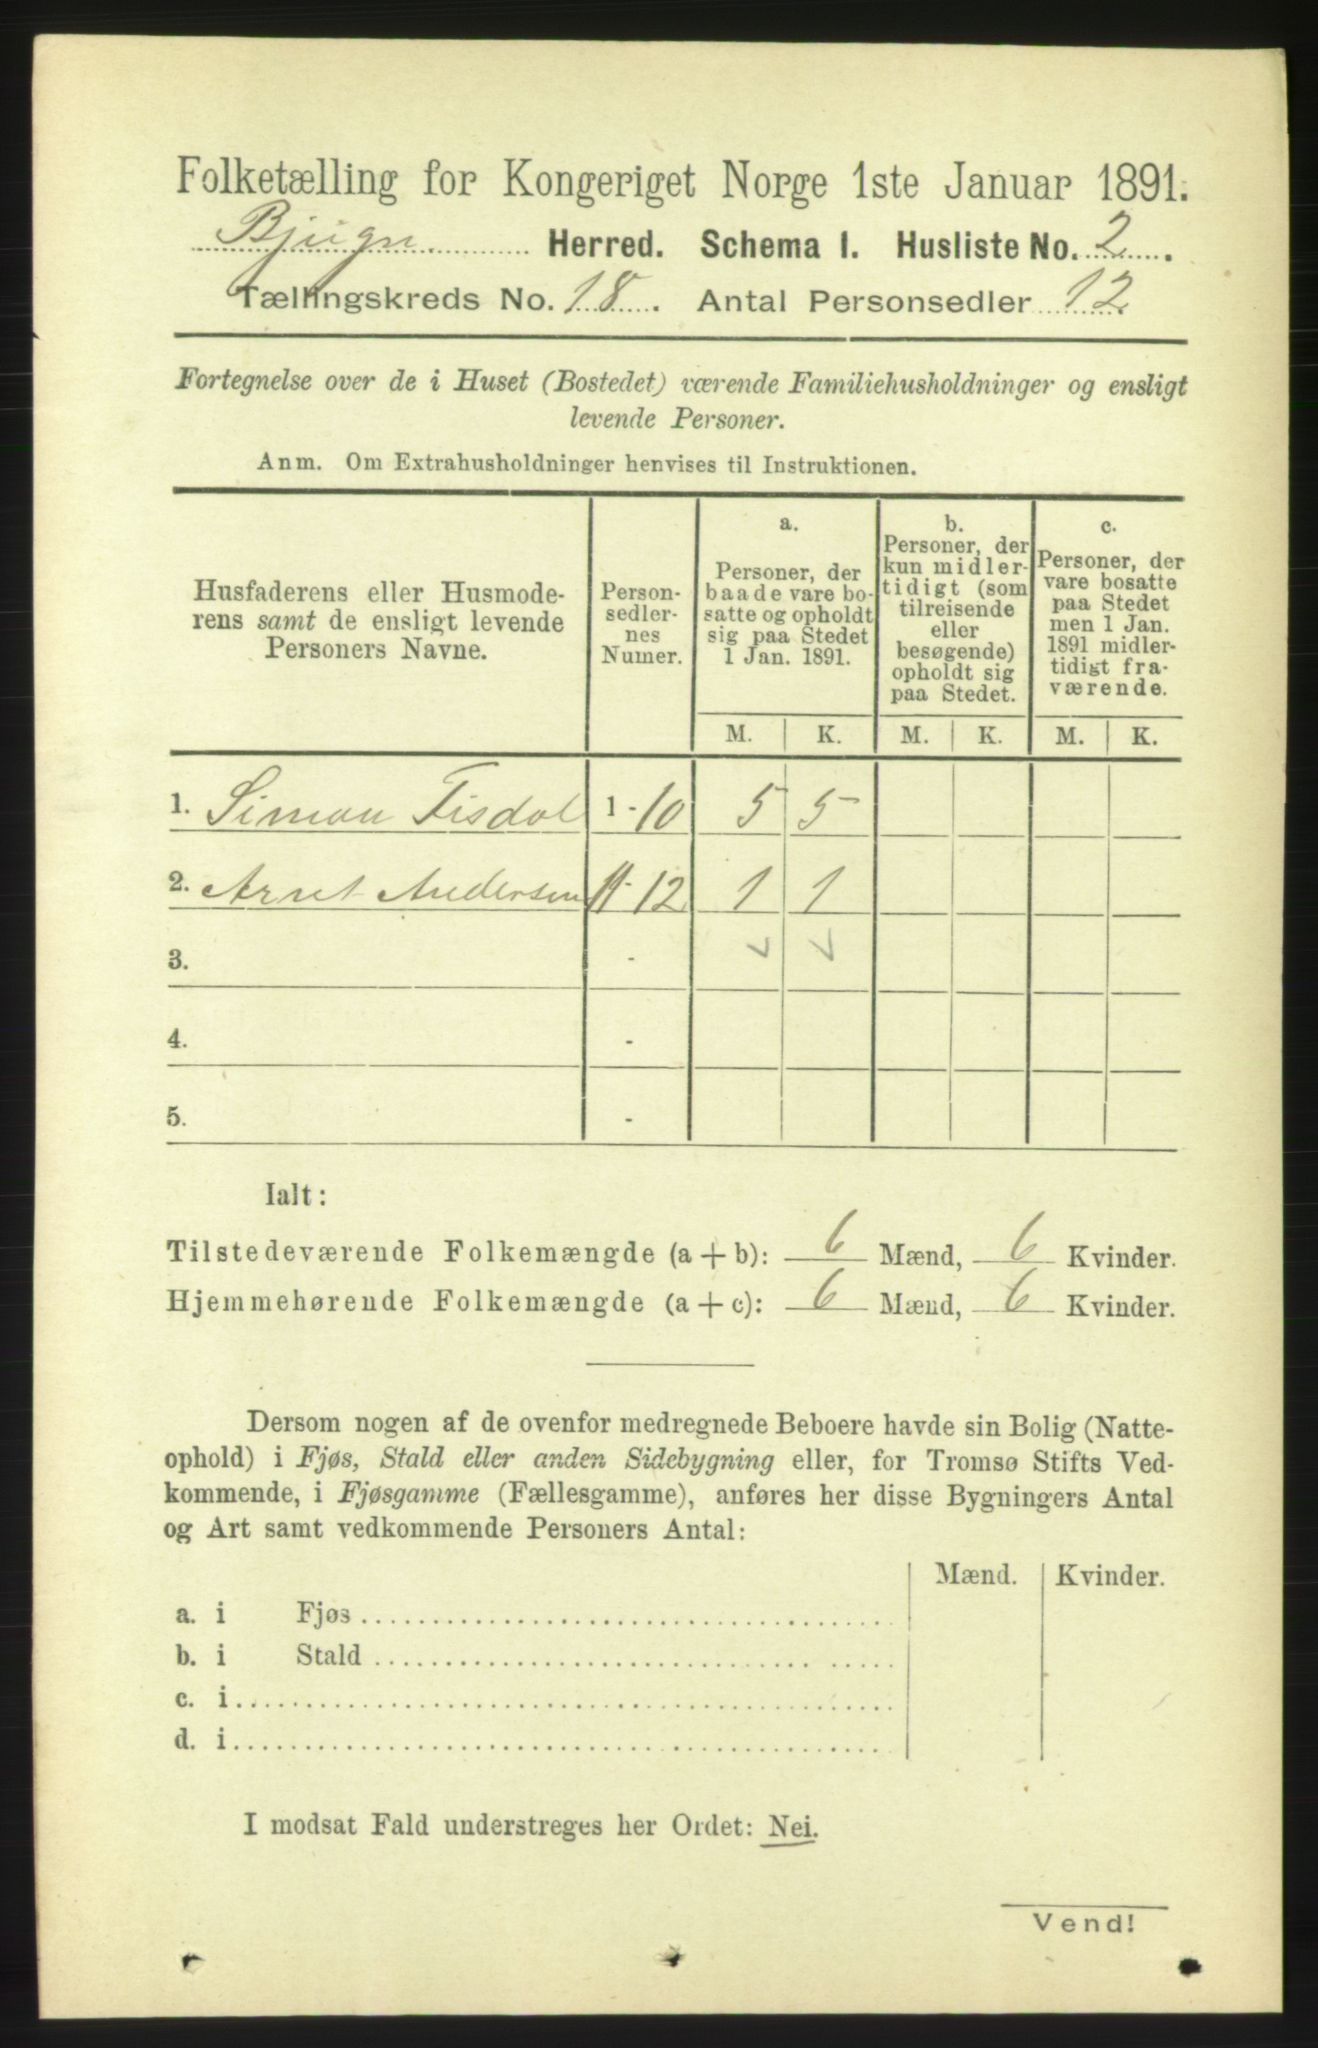 Folketælling for Kongeriget Norge 1ste Januar 1891.
Bjugn Herred. Schema I. Husliste No. 2
Tællingskreds No. 18. Antal Personsedler 12
Fortegnelse over de i Huset (Bostedet) værende Familiehusholdninger og ensligt
levende Personer.
Anm. Om Extrahusholdninger henvises til Instruktionen.
Husfaderens eller Husmode-
rens samt de ensligt levende
Personers Navne.
Person-
sedler-
nes
Numer.
a.
Personer, der
baade vare bo-
satte og opholdt
sig paa Stedet
1 Jan. 1891.
b.
Personer, der
kun midler-
tidigt (som
tilreisende
eller
besøgende)
opholdt sig
paa Stedet.
c.
Personer, der
vare bosatte
paa Stedet
men 1 Jan.
1891 midler-
tidigt fra-
værende.
M. K. M. K. M. K.
1. Simon Fisdal 1 - 10 5 5
2. Arnt Andersen 11 - 12 1 1
3. -
4. -
5. -
Ialt:
Tilstedeværende Folkemængde (a + b): 6 Mænd, 6 Kvinder.
Hjemmehørende Folkemængde (a + c): 6 Mænd, 6 Kvinder.
Dersom nogen af de ovenfor medregnede Beboere havde sin Bolig (Natte-
ophold) i Fjøs, Stald eller anden Sidebygning eller, for Tromsø Stifts Ved-
kommende, i Fjøsgamme (Fællesgamme), anføres her disse Bygningers Antal
og Art samt vedkommende Personers Antal:
Mænd. Kvinder.
a. i Fjøs
b. i Stald
c. i
d. i
I modsat Fald understreges her Ordet: Nei.
Vend!